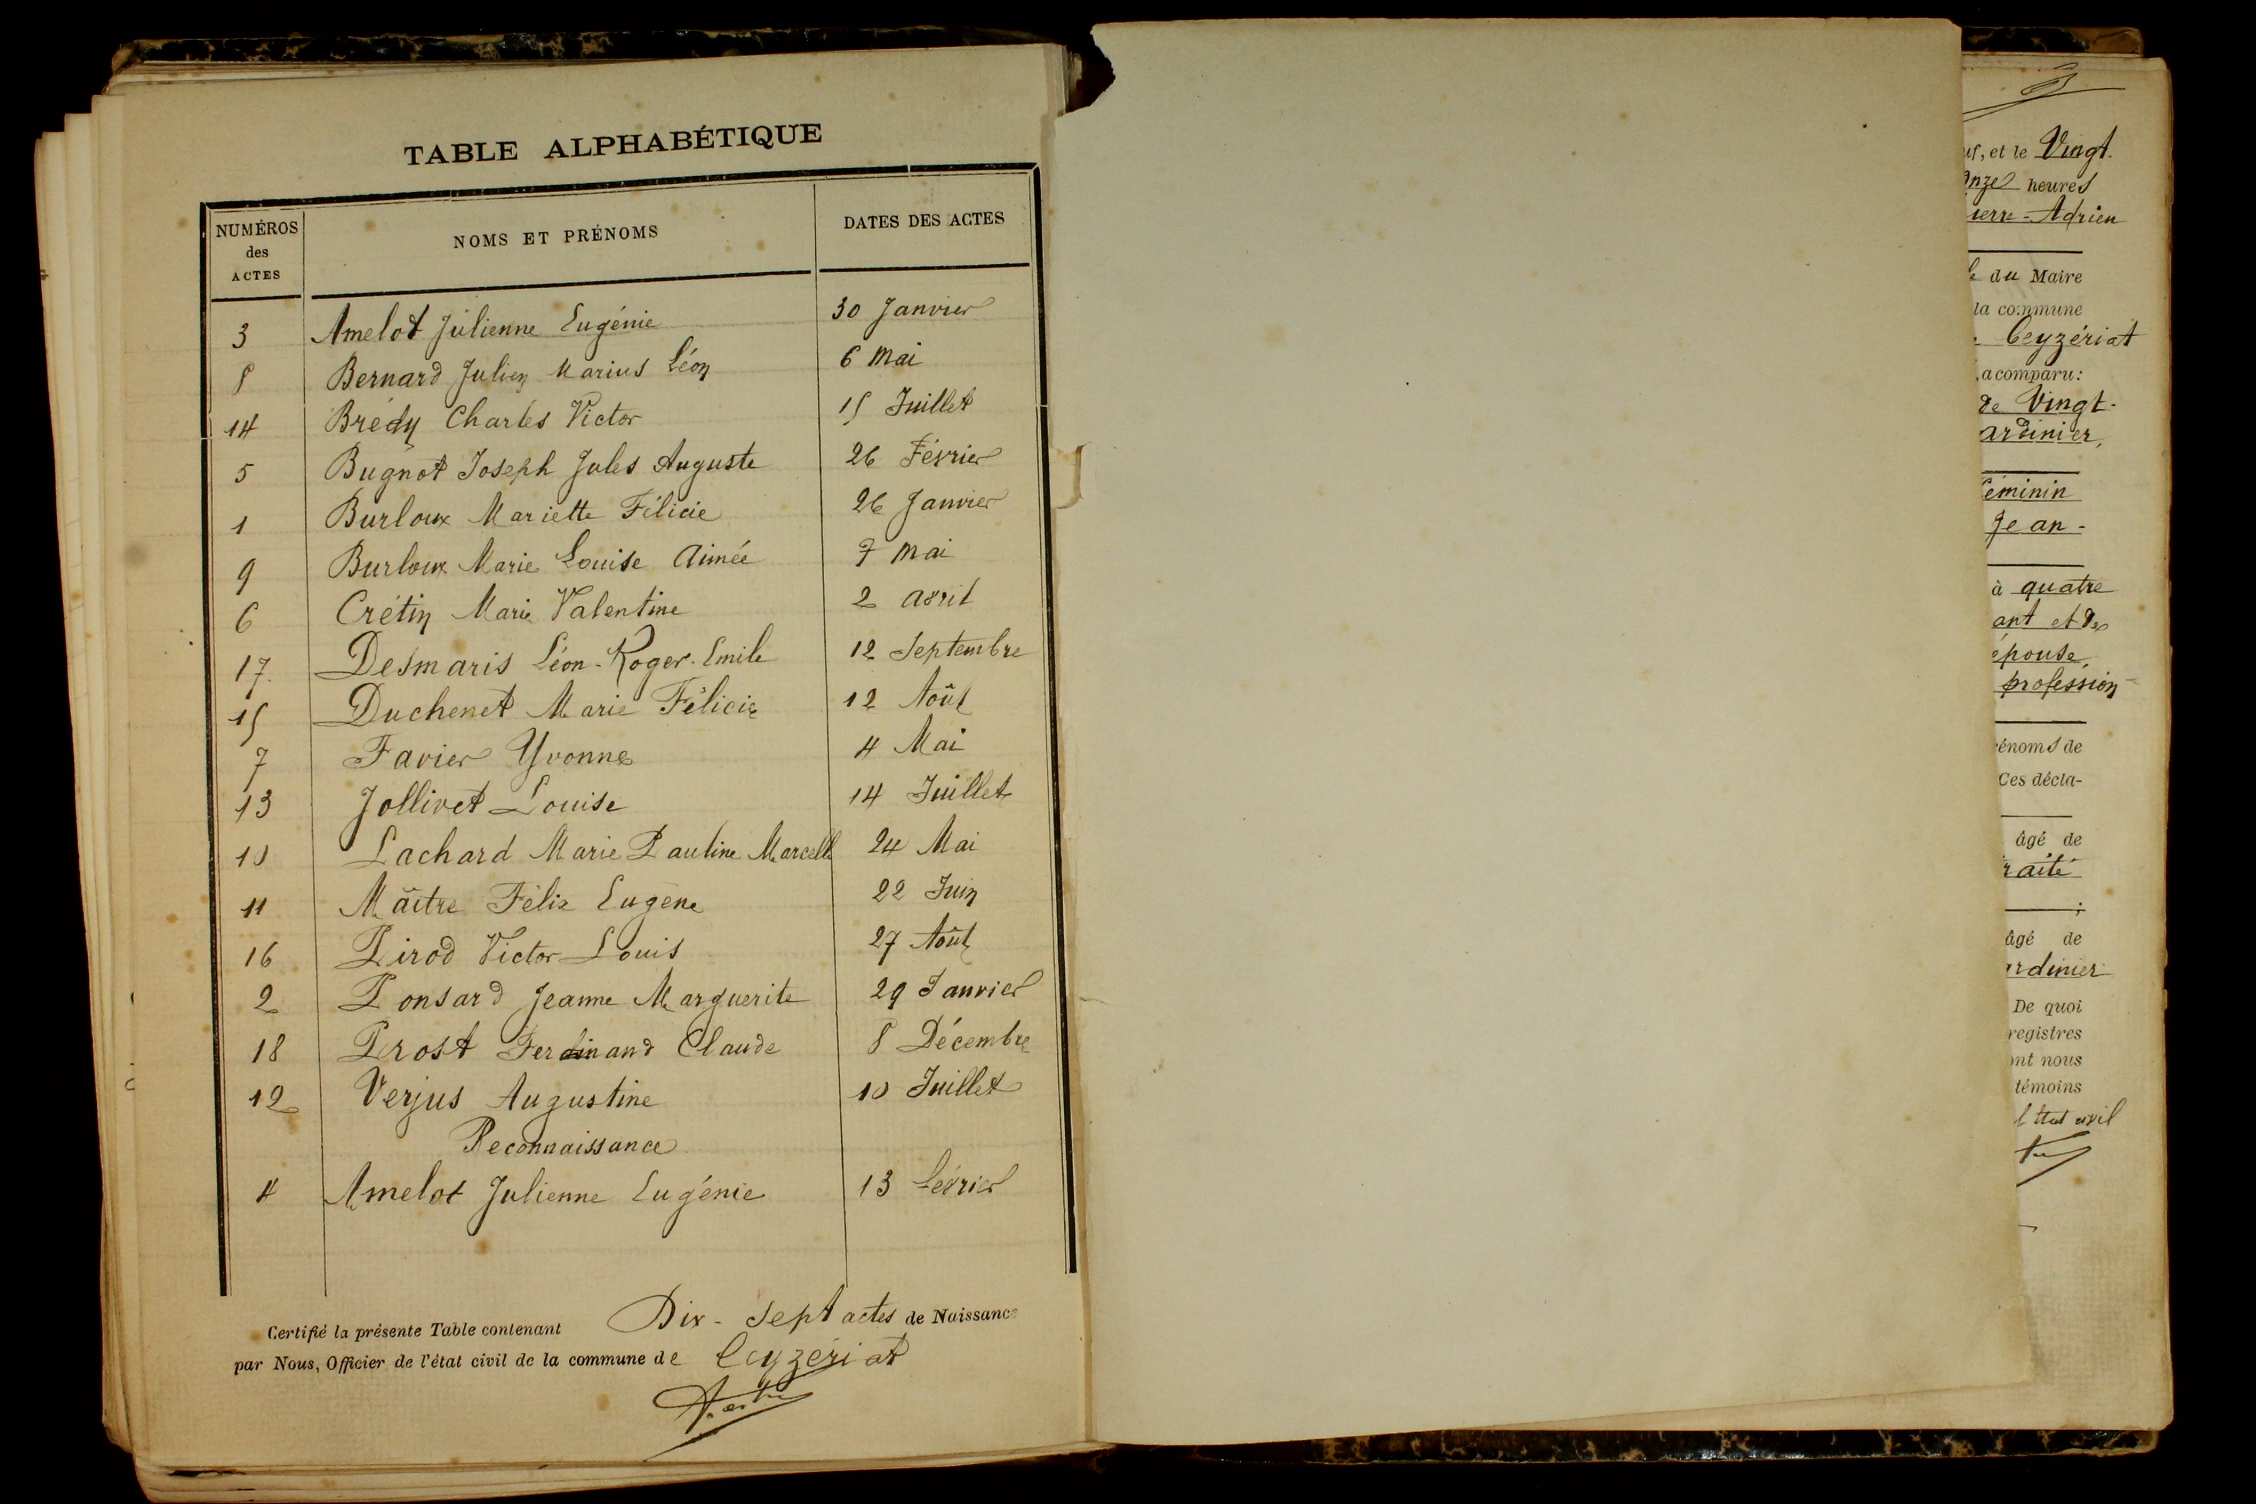 TABLE ALPHABÉTIQUE
NUMÉROS des ACTES NOMS ET PRÉNOMS DATES DES ACTES
3 Amelot Julienne Eugénie 30 Janvier
8 Bernard Julien Marius Léon 6 Mai
14 Brédy Charles Victor 15 Juillet
5 Bugnot Joseph Jules Auguste 26 Février
1 Burloux Mariette Félicie 26 Janvier
9 Burloux Marie Louise Aimée 7 Mai
6 Crétin Marie Valentine 2 Avril
17. Desmaris Léon-Roger-Emile 12 Septembre
15 Duchenet Marie Félicie 12 Août
7 Favier Yvonne 4 Mai
13 Jollivet Louise 14 Juillet
10 Lachard Marie Pauline Marcelle 24 Mai
11 Maître Félix Eugène 22 Juin
16 Pirod Victor Louis 27 Août
2 Ponsard Jeanne Marguerite 29 Janvier
18 Prost Ferdinand Claude 8 Décembre
12 Verjus Augustine 10 Juillet
Reconnaissance
4 Amelot Julienne Eugénie 13 Février
Certifié la présente Table contenant Dix-sept actes de Naissance
par Nous, Officier de l'état civil de la commune de Ceyzériat
, et le Vingt-
onze heures
ierre-Adrien
du Maire
la commune
Ceyzériat
, a comparu:
de Vingt-
ardinier,
féminin
Jean-
à quatre
ant et de
épouse,
profession
rénoms de
Ces décla-
âgé de
raité
;
âgé de
ardinier
De quoi
registres
ont nous
témoins